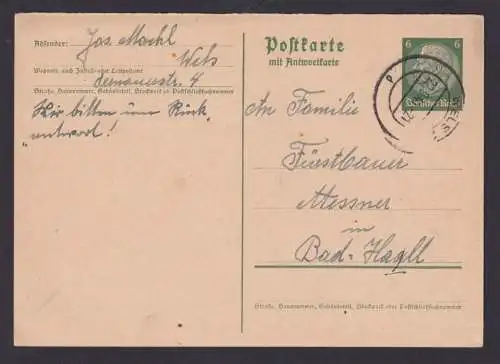 Absender: Jos. Mochl
Wels
Wohnort, auch Zustell- oder Leitpostamt
4
Straße, Hausnummer, Gebäudeteil, Stockwerk od. Postschließfachnummer
Wir bitten um Rück
antwort!
Postkarte
mit Antwortkarte
6 6
Deutsches Reich
An Familie
Fürstbauer
Messner
in
Bad-Hall
Straße, Hausnummer, Gebäudeteil, Stockwerk oder Postschließfachnummer